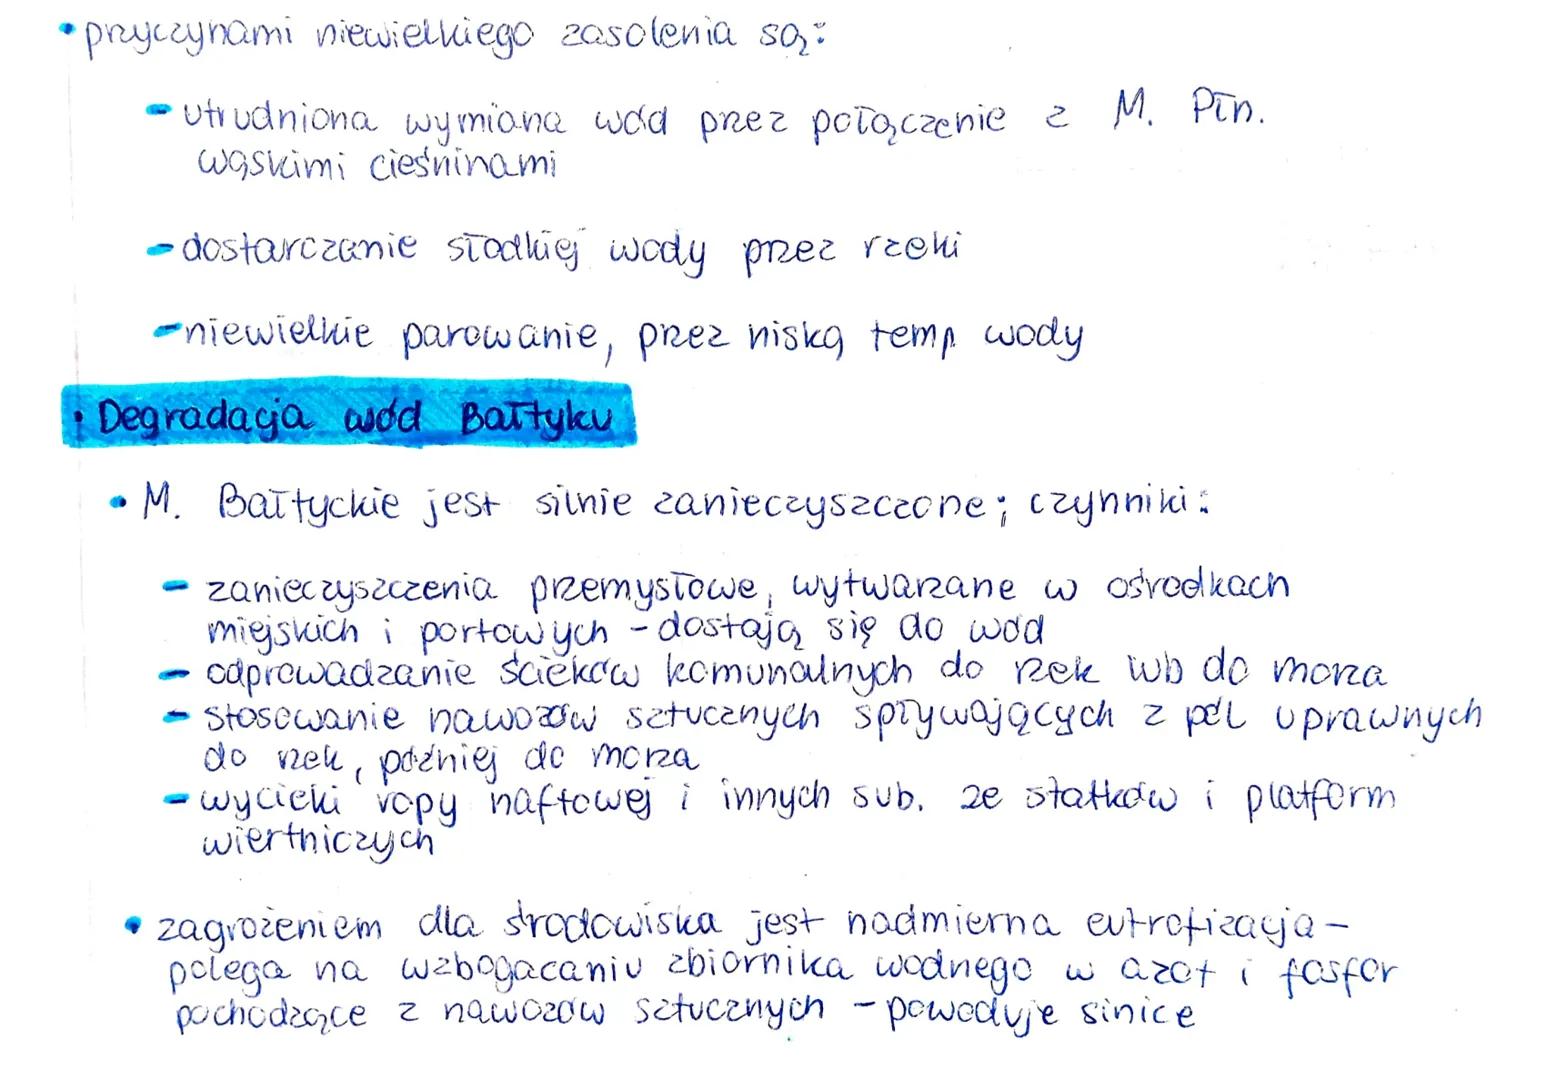 • przyczynami niewielkiego zasolenia są:
- utrudniona wymiana wód przez połączenie z M. Płn.
wąskimi cieśninami
- dostarczanie słodkiej wody przez rzeki
- niewielkie parowanie, przez niską temp. wody
• Degradacja wód Bałtyku
• M. Bałtyckie jest silnie zanieczyszczone; czynniki:
- zanieczyszczenia przemysłowe, wytwarzane w ośrodkach
miejskich i portowych - dostają się do wód
- odprowadzanie ścieków komunalnych do rzek lub do morza
- stosowanie nawozów sztucznych spływających z pól uprawnych
do rzek, później do morza
- wycieki ropy naftowej i innych sub. ze statków i platform
wiertniczych
• zagrożeniem dla środowiska jest nadmierna eutrofizacja -
polega na wzbogacaniu zbiornika wodnego w azot i fosfor
pochodzące z nawozów sztucznych - powoduje sinice